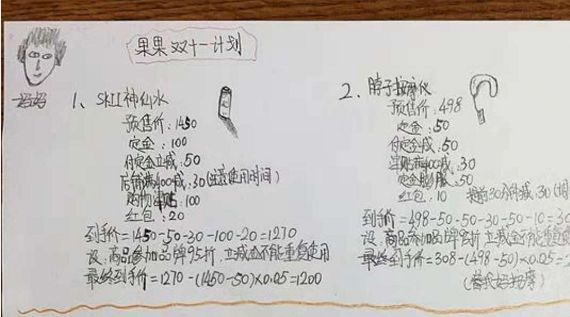 果果双十一计划
妈妈
1、SKII神仙水
预售价:1450
定金:100
付定金立减:50
店铺满400减:30(注意使用时间)
购物津贴:100
红包:20
到手价=1450-50-30-100-20=1270
设:商品参加品牌95折,立减金不能重复使用
最终到手价=1270-(1450-50)×0.05=1200
2、脖子按摩仪
预售价:498
定金:50
付定金减:50
满400减:30
定金:50
红包:10
提前30分钟减30
到手价=498-50-50-30-50-10=30
设:商品参加品牌95折,立减金不能重复使
最终到手价=308-(498-50)×0.05=